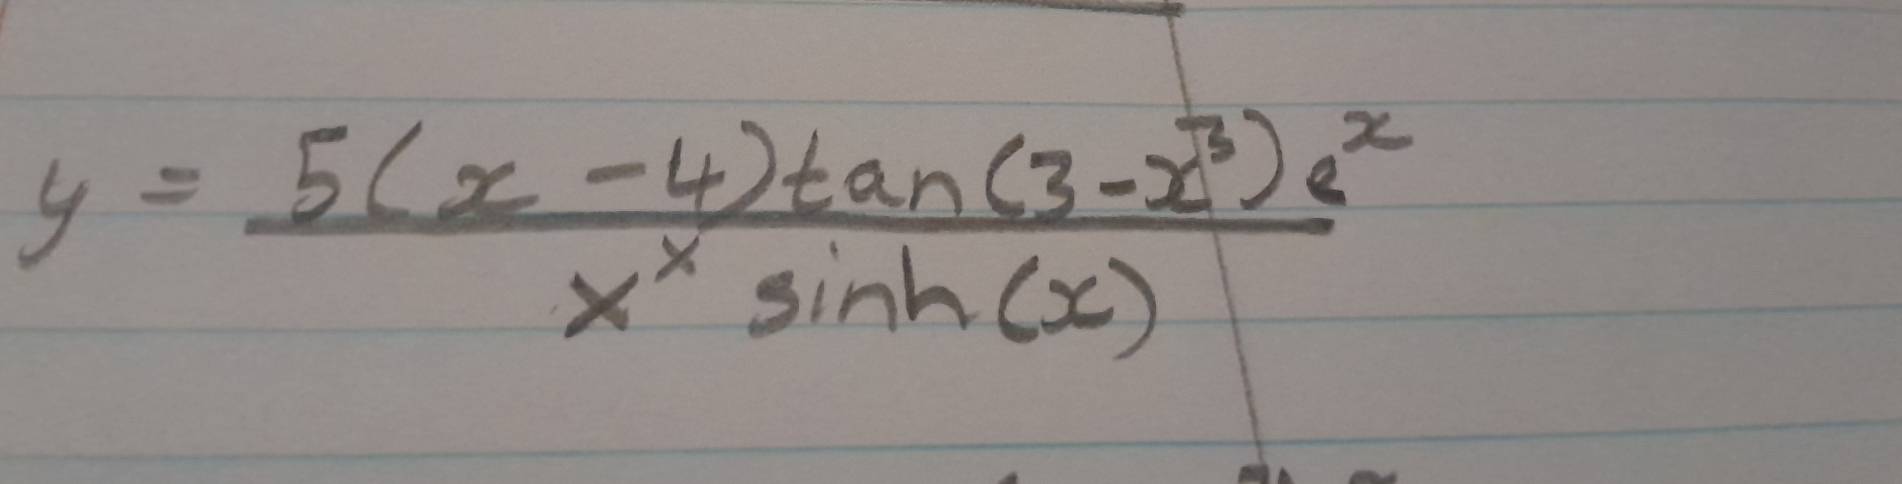 y = \frac{5(x - 4)\tan(3 - x^3)e^x}{x^x \sinh(x)}